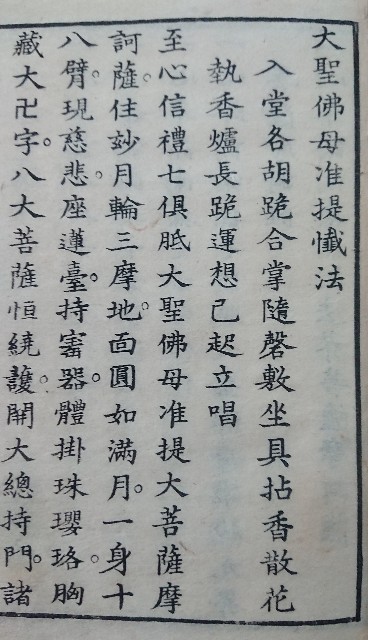 大聖佛母准提懺法
入堂各胡跪合掌隨磬敷坐具拈香散花
執香爐長跪運想已起立唱
至心信禮七俱胝大聖佛母准提大菩薩摩
訶薩。住玅月輪三摩地。面圓如滿月。一身十
八臂。現慈悲。座蓮臺。持寶器。體掛珠瓔珞。胸
藏大卍字。八大菩薩恒繞護。開大總持門。諸